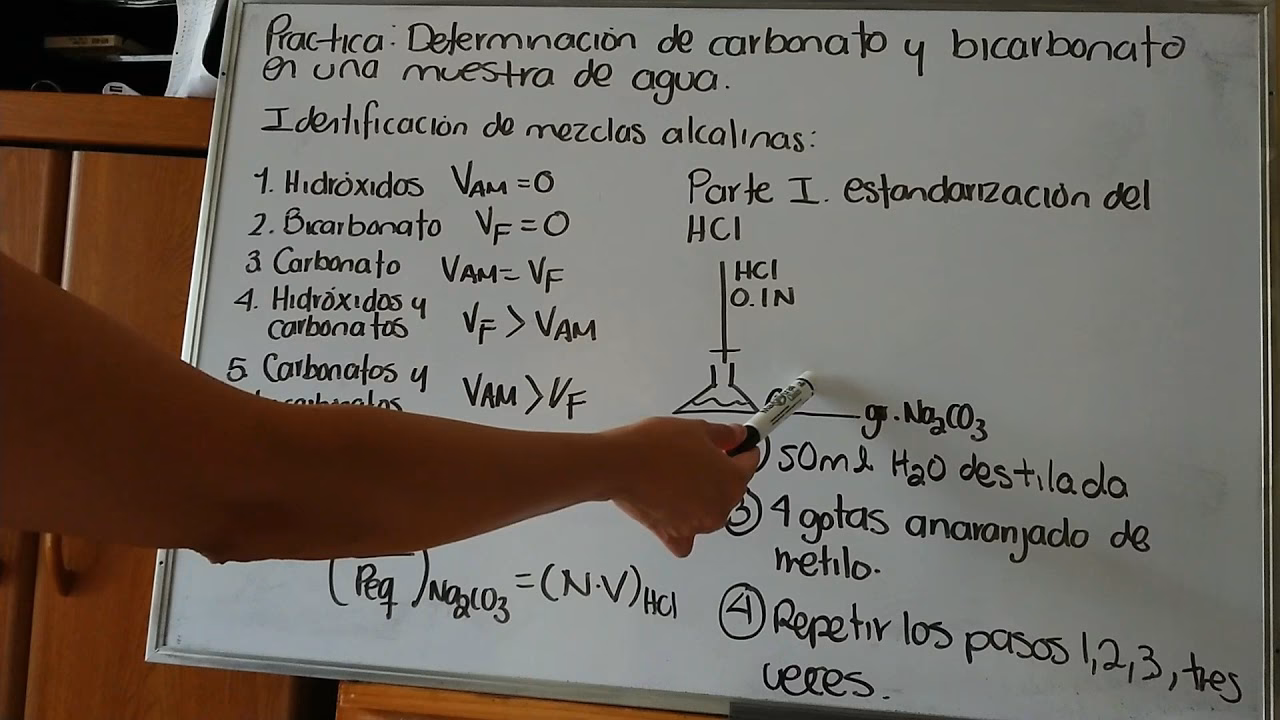 Practica: Determnación de carbonato y bicarbonato
en una muestra de agua.
Identificación de mezclas alcalinas:
1. Hidróxidos VAM = 0
2. Bicarbonato VF = 0
3 Carbonato VAM = VF
4. Hidróxidos y
carbonatos VF > VAM
5. Carbonatos y
VAM > VF
(Peq)Na2CO3 = (N.V)HCl
Parte I. estandarización del
HCl
HCl
0.1N
gr. Na2CO3
50ml H2O destilada
③ 4 gotas anaranjado de
metilo.
④ Repetir los pasos 1,2,3, tres
veces.